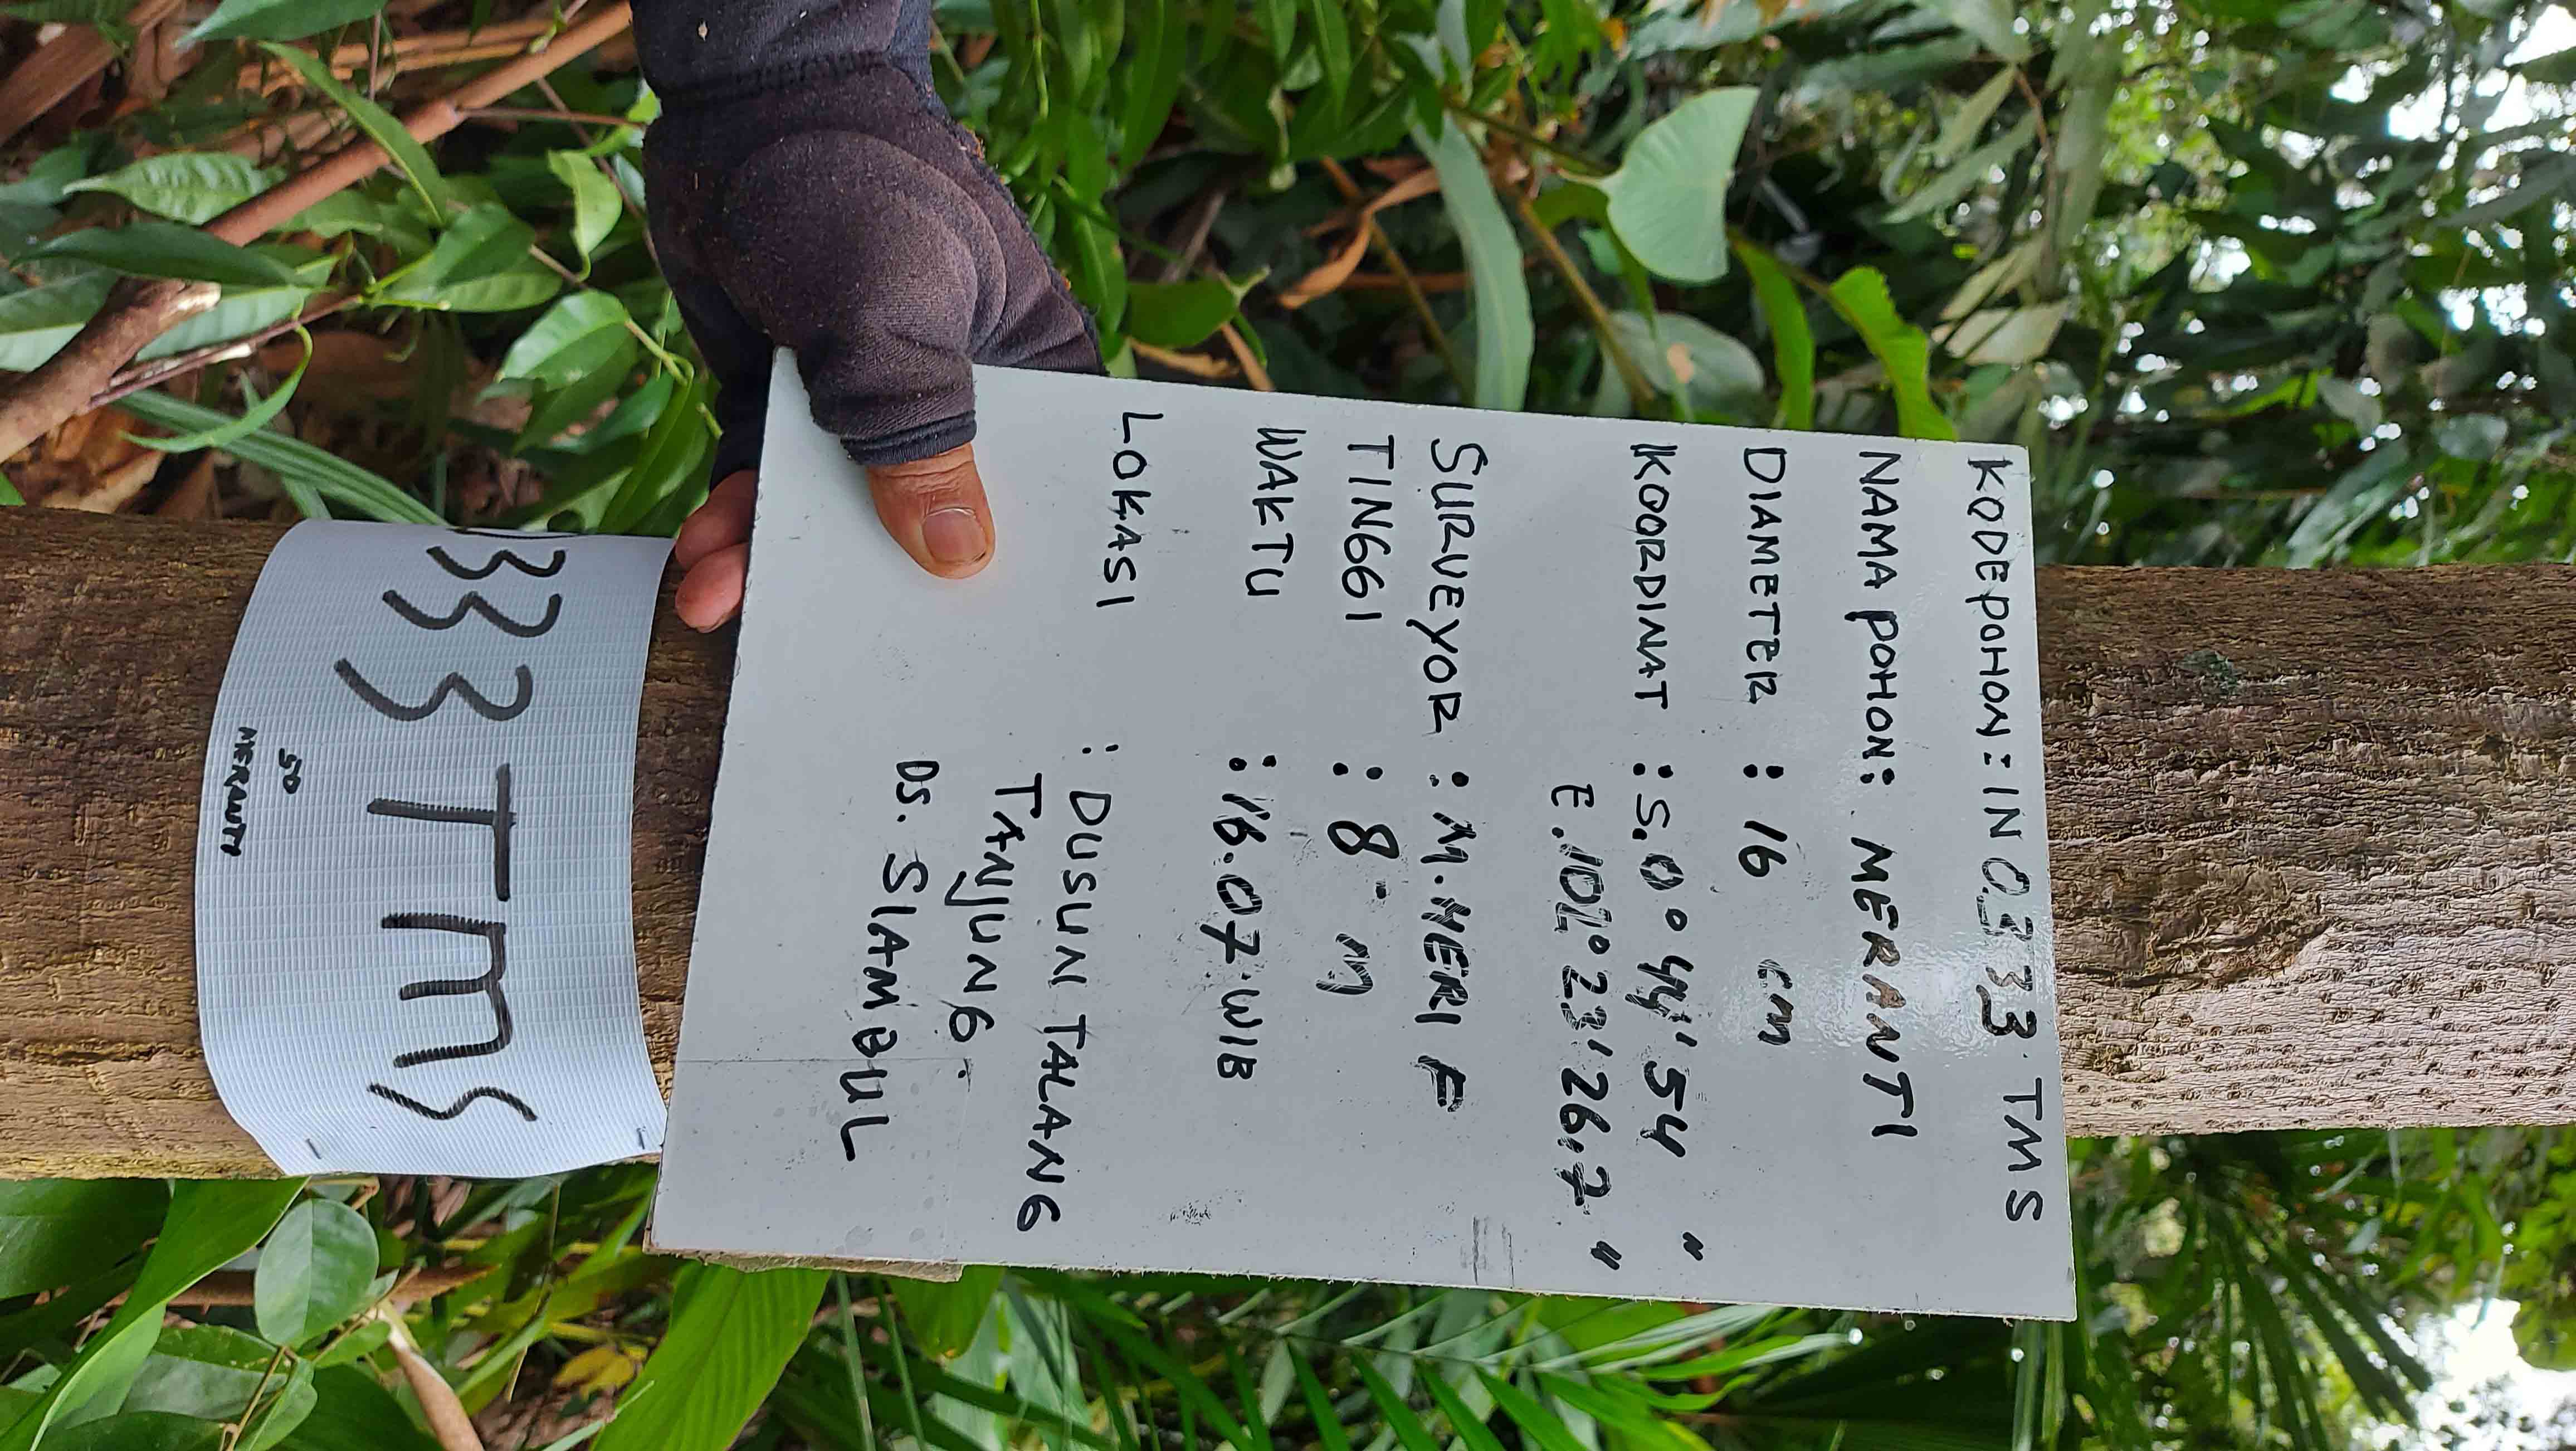 KODE POHON : IN 0333 TMS
NAMA POHON : MERANTI
DIAMETER : 16 cm
KOORDINAT : S. 0° 44' 54 "
E. 102° 23' 26,7 "
SURVEYOR : M. HERI F
TINGGI : 8 m
WAKTU : 16.07 WIB
LOKASI : DUSUN TALANG
TANJUNG.
DS. SIAMBUL
333 TMS
50
MERANTI